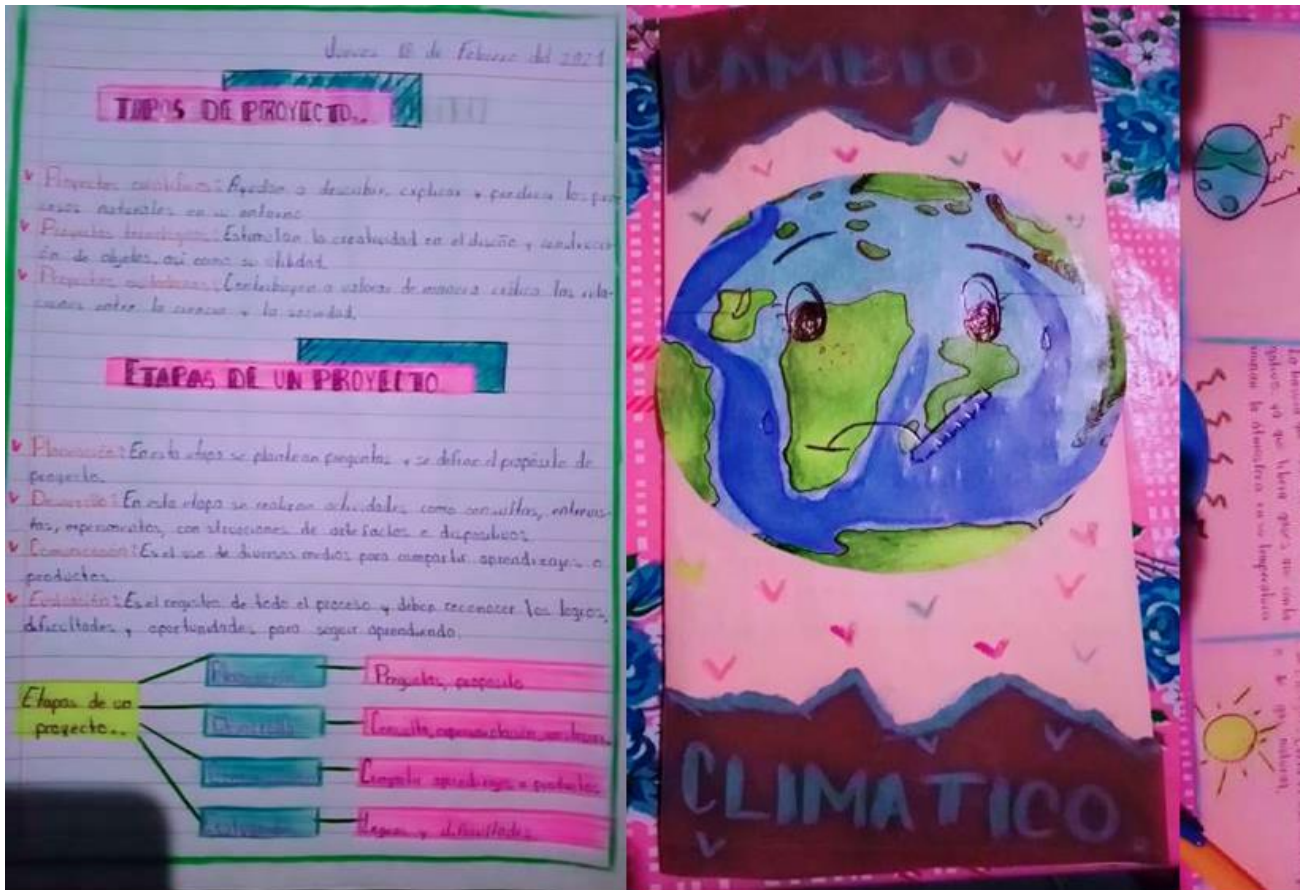 Jueves 18 de Febrero del 2021
TIPOS DE PROYECTO..
Proyectos científicos: Ayudan a describir, explicar y predecir los pro
cesos naturales en su entorno
Proyectos tecnológicos: Estimulan la creatividad en el diseño y construcci-
ón de objetos, así como su utilidad.
Proyectos ciudadanos: Contribuyen a valorar de manera crítica las rela-
ciones entre la ciencia y la sociedad.
ETAPAS DE UN PROYECTO
Planeación: En esta etapa se plantean preguntas y se define el propósito de
proyecto.
Desarrollo: En esta etapa se realizan actividades como consultas, entrevis-
tas, experimentos, con struciones de artefactos o dispositivos.
Comunicación: Es el uso de diversos medios para compartir aprendizajes o
productos.
Evaluación: Es el registro de todo el proceso y deben reconocer los logros,
dificultades, y oportunidades para seguir aprendiendo.
Etapas de un
proyecto..
Planeación
Preguntas, propósito
Desarrollo
Consulta, experimentación,
Compartir aprendizajes o productos
Logros y dificultades
CAMBIO
CLIMATICO.
que libera gases que
la atmosfera en su temperatura
natural